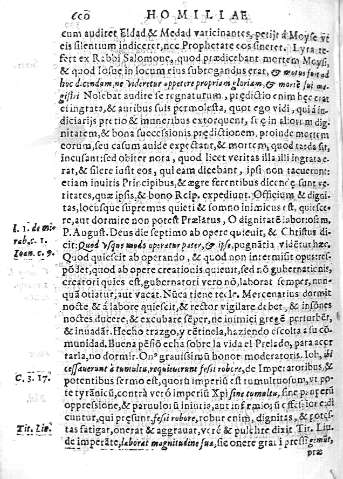 660 HOMILIAE
cum audiret Eldad & Medad vaticinantes, petijt à Moyse vt
eis silentium indiceret, nec Prophetare eos sineret. Lyra re-
fert ex Rabbi Salomone, quod prædicebant mortem Moysi,
& quod Iosue in locum eius subrogandus erat, & motus fuit ad
hoc dicendum, ne videretur appetere propriam gloriam, & mortē sui ma-
gistri Nolebat audire se regnaturum, prædictio enim hęc erat
ei ingrata, & auribus suis permolesta, quot ego vidi, qui à in-
diciarijs pretio & muneribus extorquent, si
dignitatem, & bona successionis prędictionem, proinde mortem
eorum, seu casum auide expectant, & mortem, quod tarda sit,
incusant: sed obiter nora, quod licet veritas illa illi ingrata e-
rat, & silere iusit eos, qui eam dicebant, ipsi non tacuerunt:
etiam inuitis Principibus, & ægre ferentibus dicendę sunt ve-
ritates, quæ ipsis, & bono Reip. expediunt. Officium, & dig-
nitas, locusque supremus quieti & somno inimicus est, quiesce-
re, aut dormire non potest Prælatus, O dignitatē laboriosam,
l. 1. de mi- P. August. Deus die septimo ab opere quieuit, & Christus di-
rab. c. 1. cit: Quod vsque modo operatur pater, & ipse, pugnātia vidētur hæc.
Ioan. c. 9. Quod quiescit ab operando, & quod non intermisit opus: res-
pōdet, quod ab opere creationis quieuit, sed nō gubernationis,
creatori quies est, gubernatori vero nō, laborat semper, nun-
quā otiatur, aut vacat. Nūca tiene recle. Mercenarius dormit
nocte & à labore quiescit, & rector vigilare debet, & insōnes
noctes ducere, & excubare sēper, ne inimici gregē perturbēt,
& inuadāt. Hecho trazgo, y cētinela, haziendo escolta a su cō-
munidad. Buena pēsiō echa sobre la vida el Prelado, para acer-
tarla, no dormir. Onꝰ grauissimū honor moderatoris. Ioh, ibi
cessauerunt à tumultu, requieuerunt fessi robore, de Imperatoribus, &
C. 3. 17. potentibus sermo est, quorū imperiū est tumultuosum, vt po-
te tyrānicū, contrà verò imperiū Xpi sine tumultu, sine pauperū
oppressione, & paruulorū iniuria, aut in
cuntur, qui præsunt, fessi robore, robur enim, dignitas, & potes-
Tit. Liu. tas fatigat, onerat & aggrauat, verè & pulchre dixit Tit. Liu.
de imperāte, laborat magnitudine sua, sic onere graui pressi gemunt,
præ